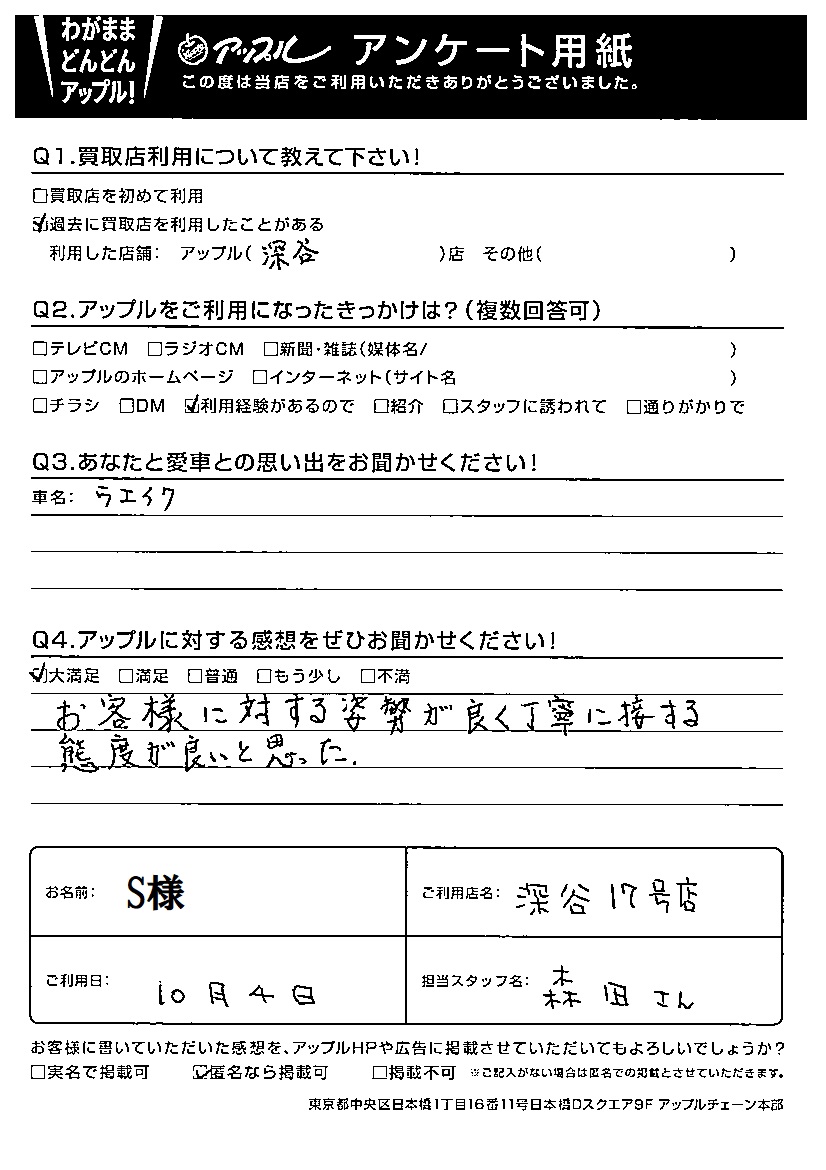 わがまま
どんどん
アップル!
アップル アンケート用紙
この度は当店をご利用いただきありがとうございました。
Q1.買取店利用について教えて下さい!
□買取店を初めて利用
☑過去に買取店を利用したことがある
利用した店舗: アップル( 深谷 )店 その他( )
Q2.アップルをご利用になったきっかけは?(複数回答可)
□テレビCM □ラジオCM □新聞・雑誌(媒体名/ )
□アップルのホームページ □インターネット(サイト名 )
□チラシ □DM ☑利用経験があるので □紹介 □スタッフに誘われて □通りがかりで
Q3.あなたと愛車との思い出をお聞かせください!
車名: ラエイク
Q4.アップルに対する感想をぜひお聞かせください!
☑大満足 □満足 □普通 □もう少し □不満
お客様に対する姿勢が良く丁寧に接する
態度が良いと思った.
お名前: S様
ご利用店名: 深谷17号店
ご利用日: 10月4日
担当スタッフ名: 森田さん
お客様に書いていただいた感想を、アップルHPや広告に掲載させていただいてもよろしいでしょうか?
□実名で掲載可 ☑匿名なら掲載可 □掲載不可 ※ご記入がない場合は匿名での掲載とさせていただきます。
東京都中央区日本橋1丁目16番11号日本橋Dスクエア9F アップルチェーン本部